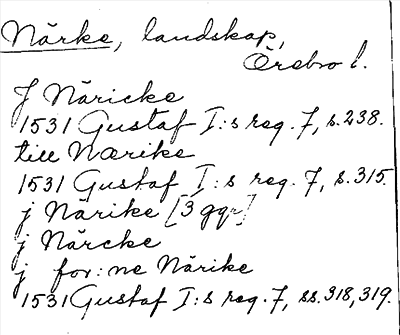 Närke, landskap,
Örebro l.
J Näricke
1531 Gustaf I:s reg. 7, s. 238.
till Nærike
1531 Gustaf I:s reg. 7, s. 315.
j Närike [3 ggr]
j Närcke
j for:ne Närike
1531 Gustaf I:s reg. 7, ss. 318, 319.